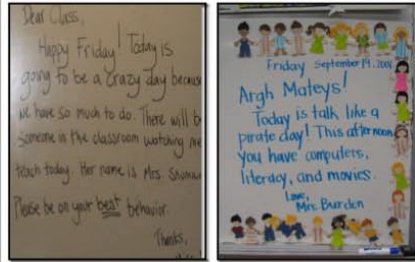 Dear Class,
Happy Friday! Today is
going to be a crazy day because
we have so much to do. There will
someone in the classroom watching me
teach today. Her name is Mrs.
Please be on your best behavior.
Thanks,
Friday September 19, 2008
Argh Mateys!
Today is talk like a
pirate day! This afternoon
you have computers,
literacy, and movies.
Love,
Mrs. Burden